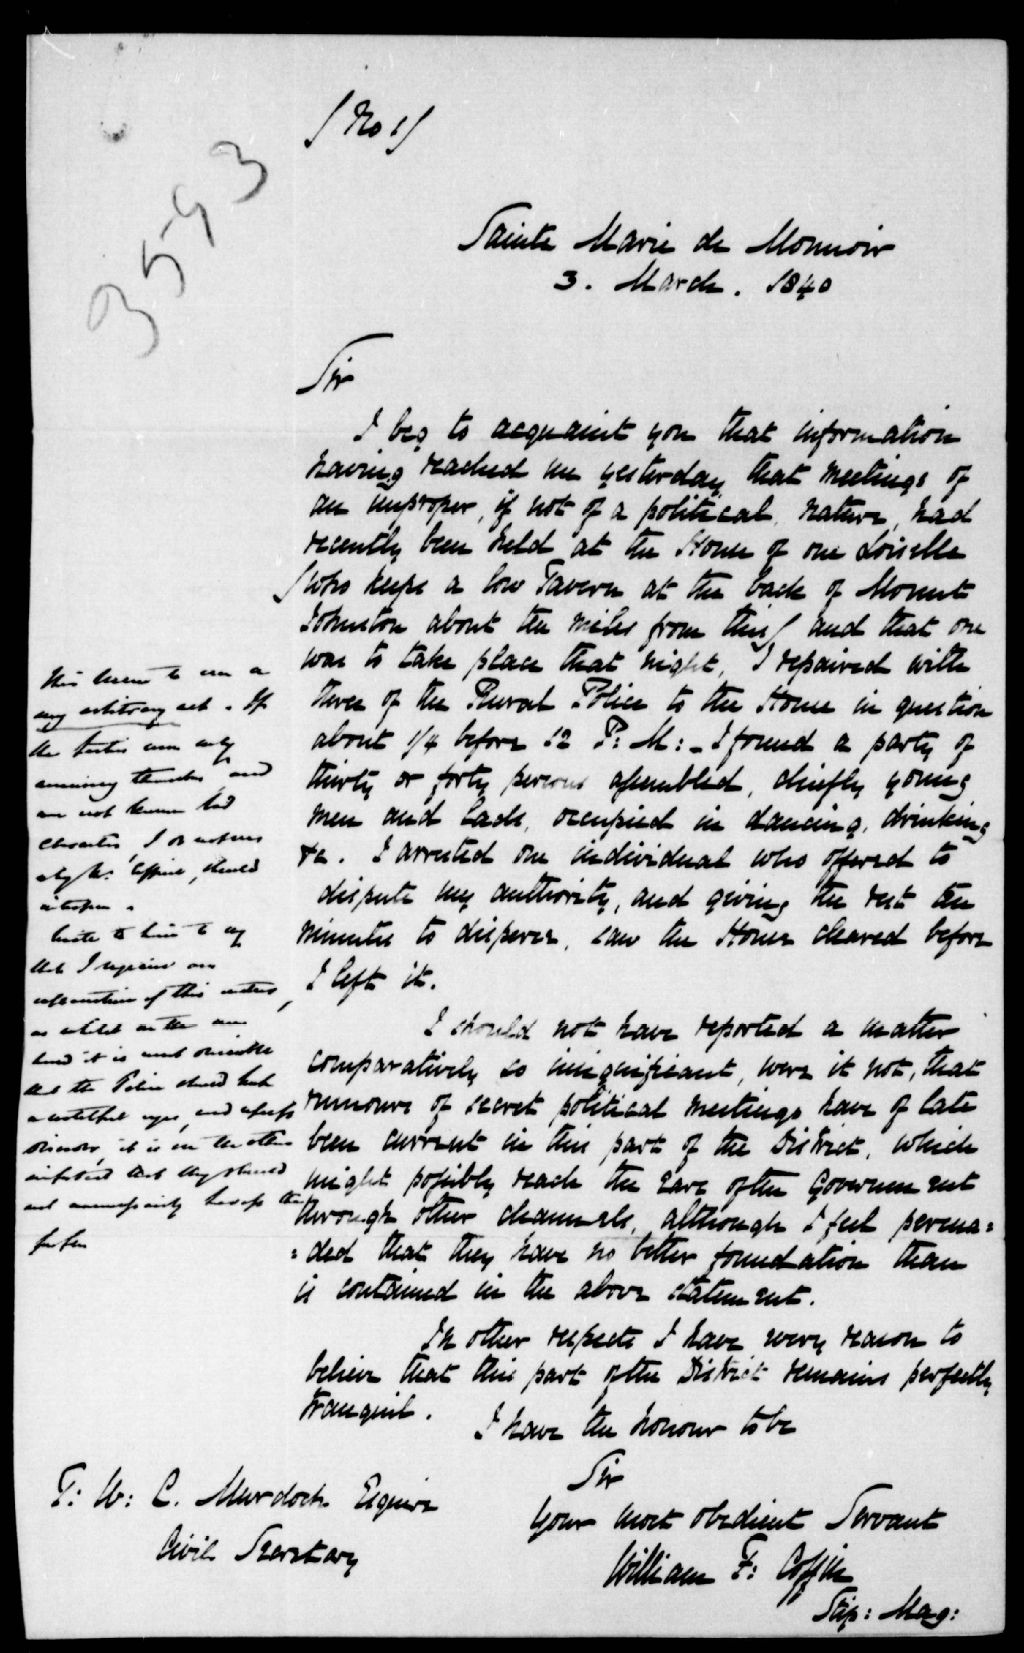 (No 1)
3593
Sainte Marie de Monnoir
3. March. 1840
Sir
I beg to acquaint you that information
having reached me yesterday, that meetings of
an improper, if not of a political, nature, had
recently been held at the House of one Loiselle
(who keeps a low Tavern at the back of Mount
Johnston about ten miles from this) and that one
was to take place that night, I repaired with
three of the Rural Police to the House in question
about 1/4 before 12 P: M: - I found a party of
thirty or forty persons assembled, chiefly young
men and lads, occupied in dancing, drinking
&c. I arrested one individual who offered to
dispute my authority, and giving the rest ten
minutes to disperse, saw the House cleared before
I left it.
I should not have reported a matter
comparatively so insignificant, were it not, that
rumours of secret political meetings have of late
been current in this part of the District, which
might possibly reach the ears of the Government
through other channels, although I feel persua=
=ded that they have no better foundation than
is contained in the above statement.
In other respects I have every reason to
believe that this part of the District remains perfectly
tranquil.
I have the honour to be
Sir
Your most obedient Servant
William F: Coffin
Stip: Mag:
T: W: C. Murdoch Esquire
Civil Secretary
This seems to me a
very arbitrary act. If
the parties were only
amusing themselves and
are not known bad
characters, I do not see
why Mr. Coffin, should
interfere.
Write to him to say
that I require an
explanation of this matter,
as whilst on the one
hand it is most desirable
that the Police should keep
a watchful eye, and repress
disorder, it is on the other
important that they should
not unnecessarily harass the